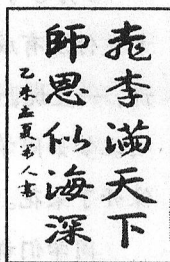 桃李滿天下
師恩似海深
乙未夏人書